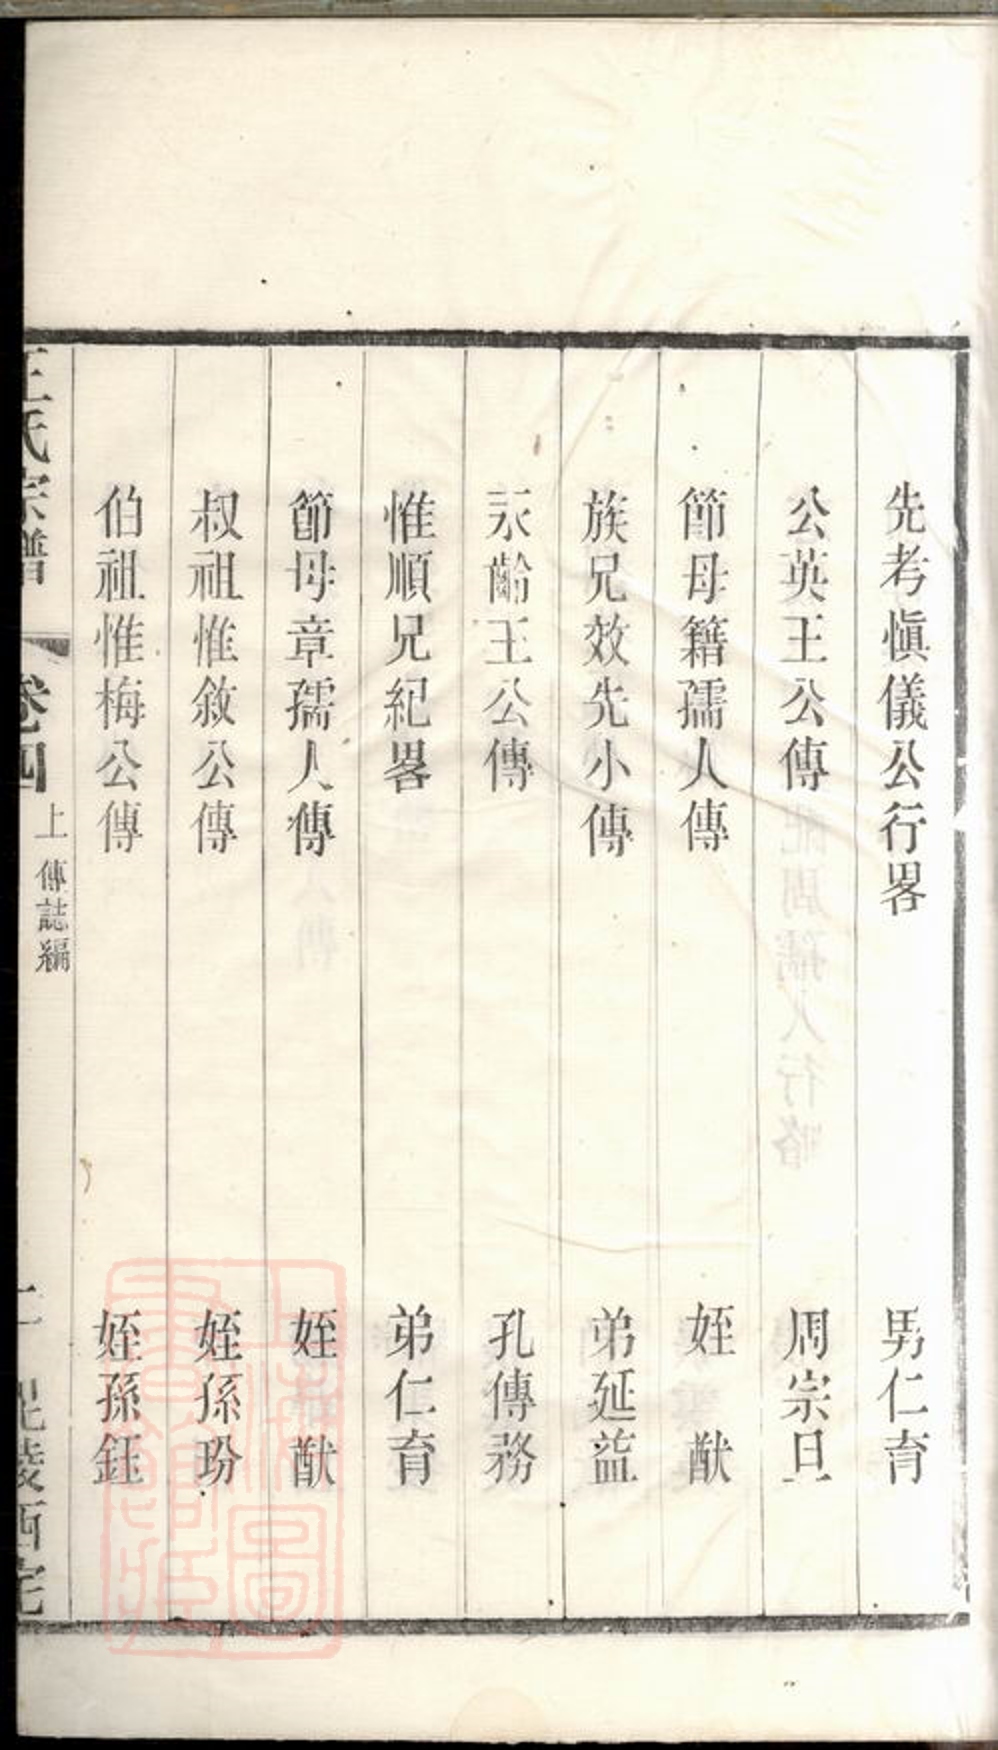 先考愼儀公行畧 男仁育
公英王公傳 周宗旦
節母籍孺人傳 姪 猷
族兄效先小傳 弟延益
永齡王公傳 孔傳務
惟順兄紀畧 弟仁育
節母章孺人傳 姪 猷
叔祖惟敘公傳 姪孫玢
伯祖惟梅公傳 姪孫鈺
王氏宗譜 卷四 上 傳誌編 二 毘陵西宅
上海圖書館藏